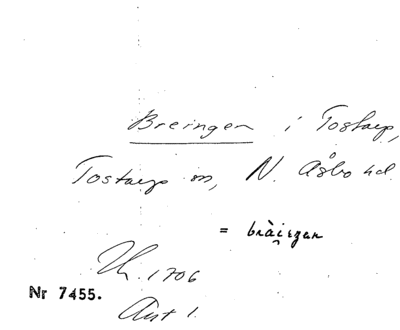 Breingen i Tostarp,
Tostarp sn, N. Åsbo hd.
= bràiŋgən
1706
Nr 7455.